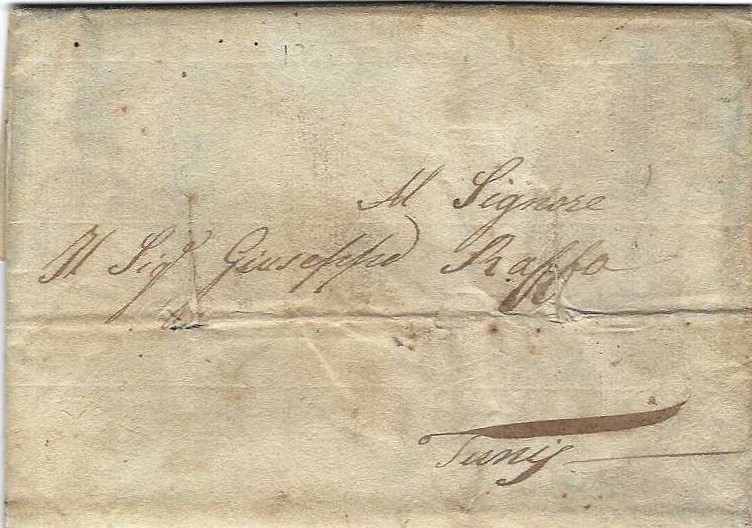 Al Signore
Il Sigr Giuseppe Raffo
Tunis